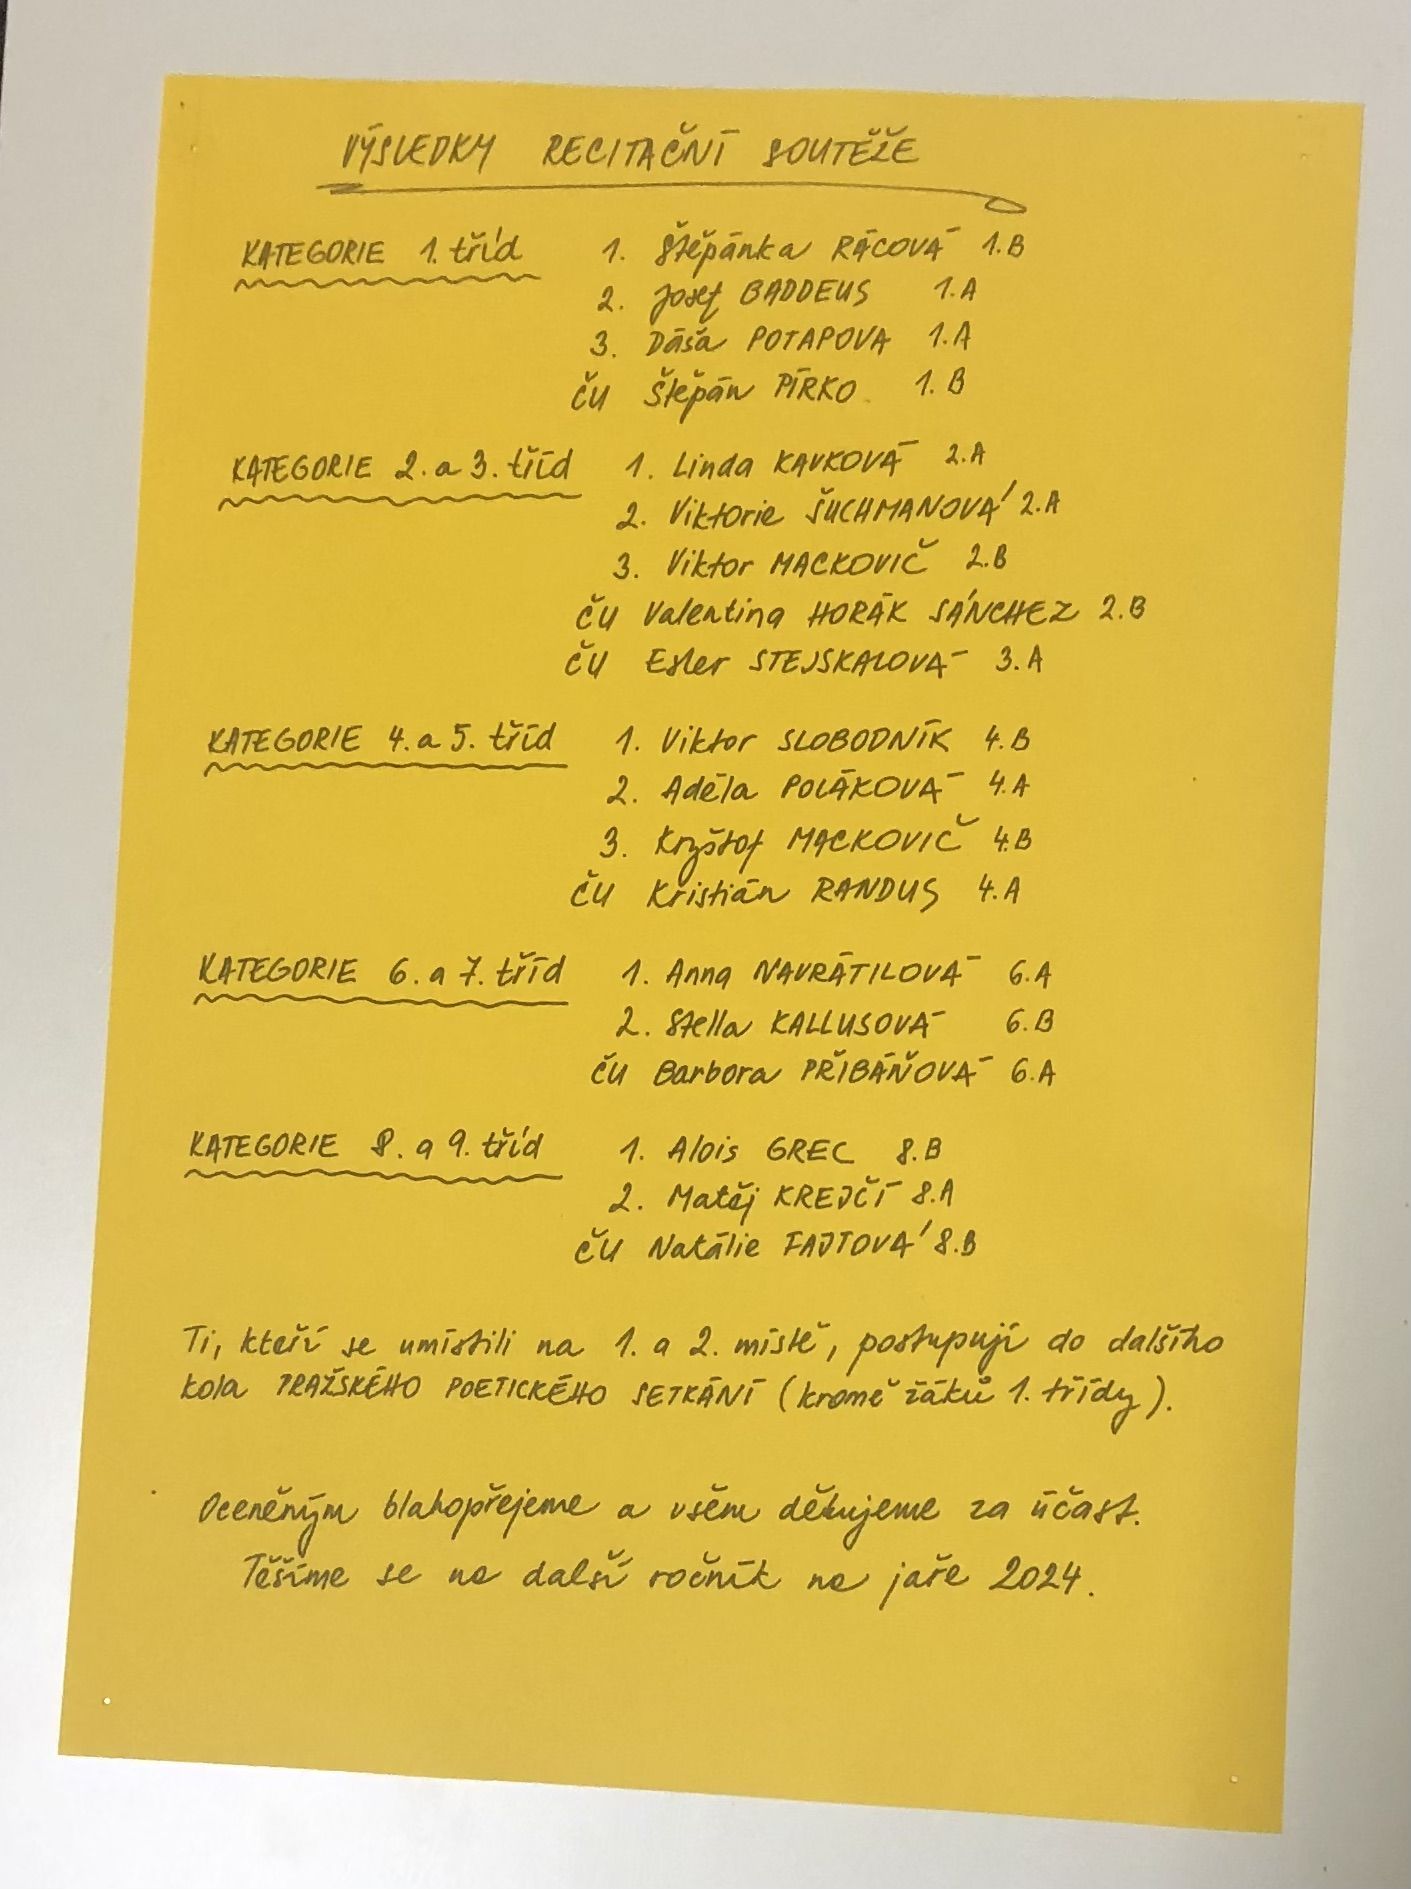 VÝSLEDKY RECITAČNÍ SOUTĚŽE
KATEGORIE 1. tříd 1. Štěpánka RÁCOVÁ 1.B
2. Josef BADDEUS 1.A
3. Dáša POTAPOVA 1.A
ČU Štěpán PÍRKO 1.B
KATEGORIE 2. a 3. tříd 1. Linda KAVKOVÁ 2.A
2. Viktorie ŠUCHMANOVÁ 2.A
3. Viktor MACKOVIČ 2.B
ČU Valentina HORÁK SÁNCHEZ 2.B
ČU Ester STEJSKALOVÁ 3.A
KATEGORIE 4. a 5. tříd 1. Viktor SLOBODNÍK 4.B
2. Adéla POLÁKOVÁ 4.A
3. Kryštof MACKOVIČ 4.B
ČU Kristián RANDUS 4.A
KATEGORIE 6. a 7. tříd 1. Anna NAVRÁTILOVÁ 6.A
2. Stella KALLUSOVÁ 6.B
ČU Barbora PŘIBÁŇOVÁ 6.A
KATEGORIE 8. a 9. tříd 1. Alois GREC 8.B
2. Matěj KREJČÍ 8.A
ČU Natálie FAJTOVÁ 8.B
Ti, kteří se umístili na 1. a 2. místě, postupují do dalšího
kola PRAŽSKÉHO POETICKÉHO SETKÁNÍ (kromě žáků 1. třídy).
Oceněným blahopřejeme a všem děkujeme za účast.
Těšíme se na další ročník na jaře 2024.